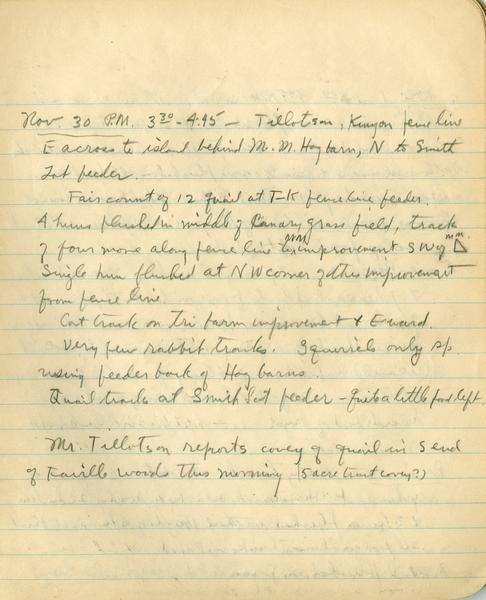 Nov. 30 P.M. 3 30 - 4:45 — Tillotson, Kenyon fence line
E across to island behind M. M. Hog barn, N to Smith
Lot feeder.
Fair count of 12 quail at T-K fence line feeder.
4 huns flushed in middle of Canary grass field, track
of four more along fence line improvement SW of
Single hun flushed at NW corner of this improvement
from fence line.
Cat track on Tri barm improvement & Eward.
Very few rabbit tracks. Squirrels only sp
using feeder back of Hog barns.
Quail tracks at Smith Lot feeder - Quite a little food left.
Mr. Tillotson reports covey of quail in S end
of Faville woods this morning (5 acre tract covey?)